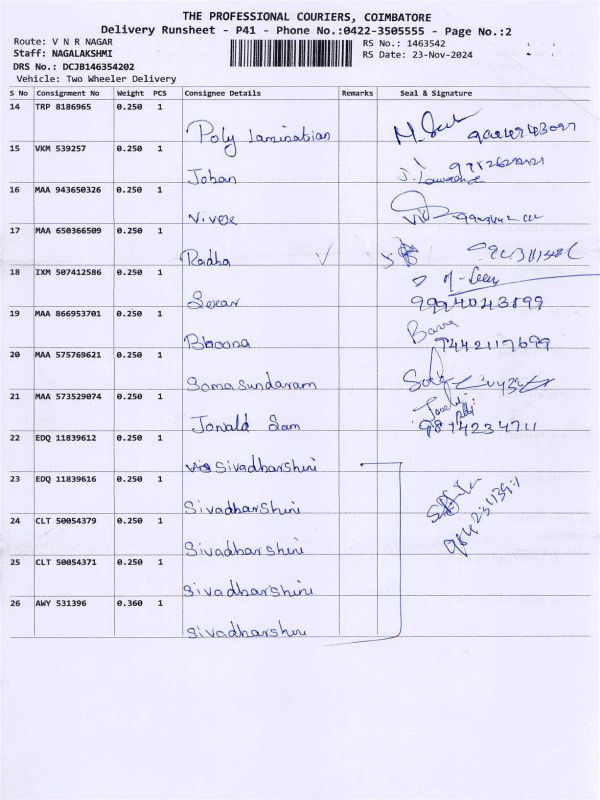 THE PROFESSIONAL COURIERS, COIMBATORE
Delivery Runsheet - P41 - Phone No.:0422-3505555 - Page No.:2
Route: V N R NAGAR RS No.: 1463542
Staff: NAGALAKSHMI RS Date: 23-Nov-2024
DRS No.: DCJB146354202
Vehicle: Two Wheeler Delivery
S No Consignment No Weight PCS Consignee Details Remarks Seal & Signature
14 TRP 8186965 0.250 1
Poly Lamination
15 VKM 539257 0.250 1
Joban
16 MAA 943650326 0.250 1
Vivek
17 MAA 650366509 0.250 1
Radha
18 IXM 507412586 0.250 1
9994043899
19 MAA 866953701 0.250 1
Bhoona
7442117699
20 MAA 575769621 0.250 1
Somasundaram
21 MAA 573529074 0.250 1
Jonald Sam 9874234711
22 EDQ 11839612 0.250 1
Sivadharshini
23 EDQ 11839616 0.250 1
Sivadharshini
24 CLT 50054379 0.250 1
Sivadharshini
25 CLT 50054371 0.250 1
Sivadharshini
26 AWY 531396 0.360 1
Sivadharshini